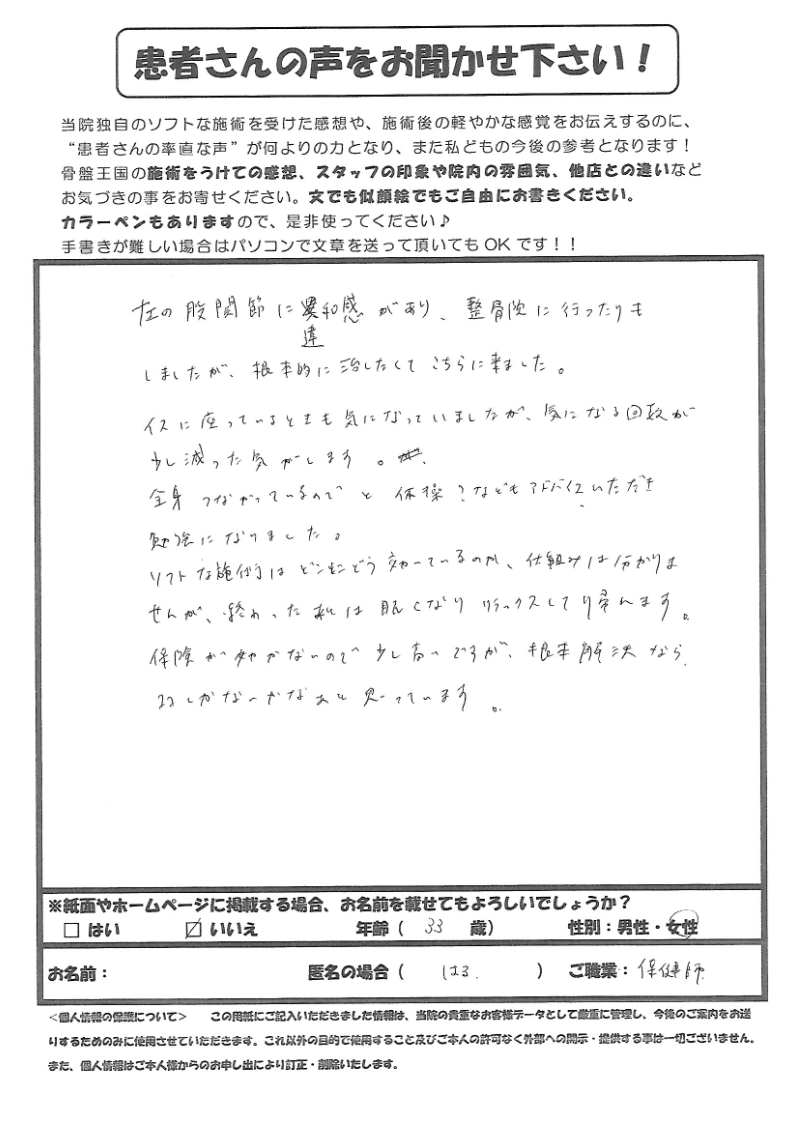 患者さんの声をお聞かせ下さい！
当院独自のソフトな施術を受けた感想や、施術後の軽やかな感覚をお伝えするのに、
“患者さんの率直な声”が何よりの力となり、また私どもの今後の参考となります！
骨盤王国の施術をうけての感想、スタッフの印象や院内の雰囲気、他店との違いなど
お気づきの事をお寄せください。文でも似顔絵でもご自由にお書きください。
カラーペンもありますので、是非使ってください♪
手書きが難しい場合はパソコンで文章を送って頂いてもOKです！！
左の股関節に異和感があり、整骨院に行ったりも
違
しましたが、根本的に治したくてこちらに来ました。
イスに座っているときも気になっていましたが、気になる回数が
少し減った気がします。
全身つながっているのでと体操？などもアドバイスいただき
勉強になりました。
ソフトな施術はどこにどう効いているのか、仕組みは分かりま
せんが、終わった私は眠くなりリラックスして帰れます。
保険が効かないので少し高いですが、根本解決なら
しかないかなぁと思っています。
※紙面やホームページに掲載する場合、お名前を載せてもよろしいでしょうか？
□ はい ☑ いいえ 年齢（ 33 歳） 性別：男性・女性
お名前： 匿名の場合（ はる. ） ご職業：保健師
＜個人情報の保護について＞ この用紙にご記入いただきました情報は、当院の貴重なお客様データとして厳重に管理し、今後のご案内をお送
りするためのみに使用させていただきます。これ以外の目的で使用すること及びご本人の許可なく外部への開示・提供する事は一切ございません。
また、個人情報はご本人様からのお申し出により訂正・削除いたします。